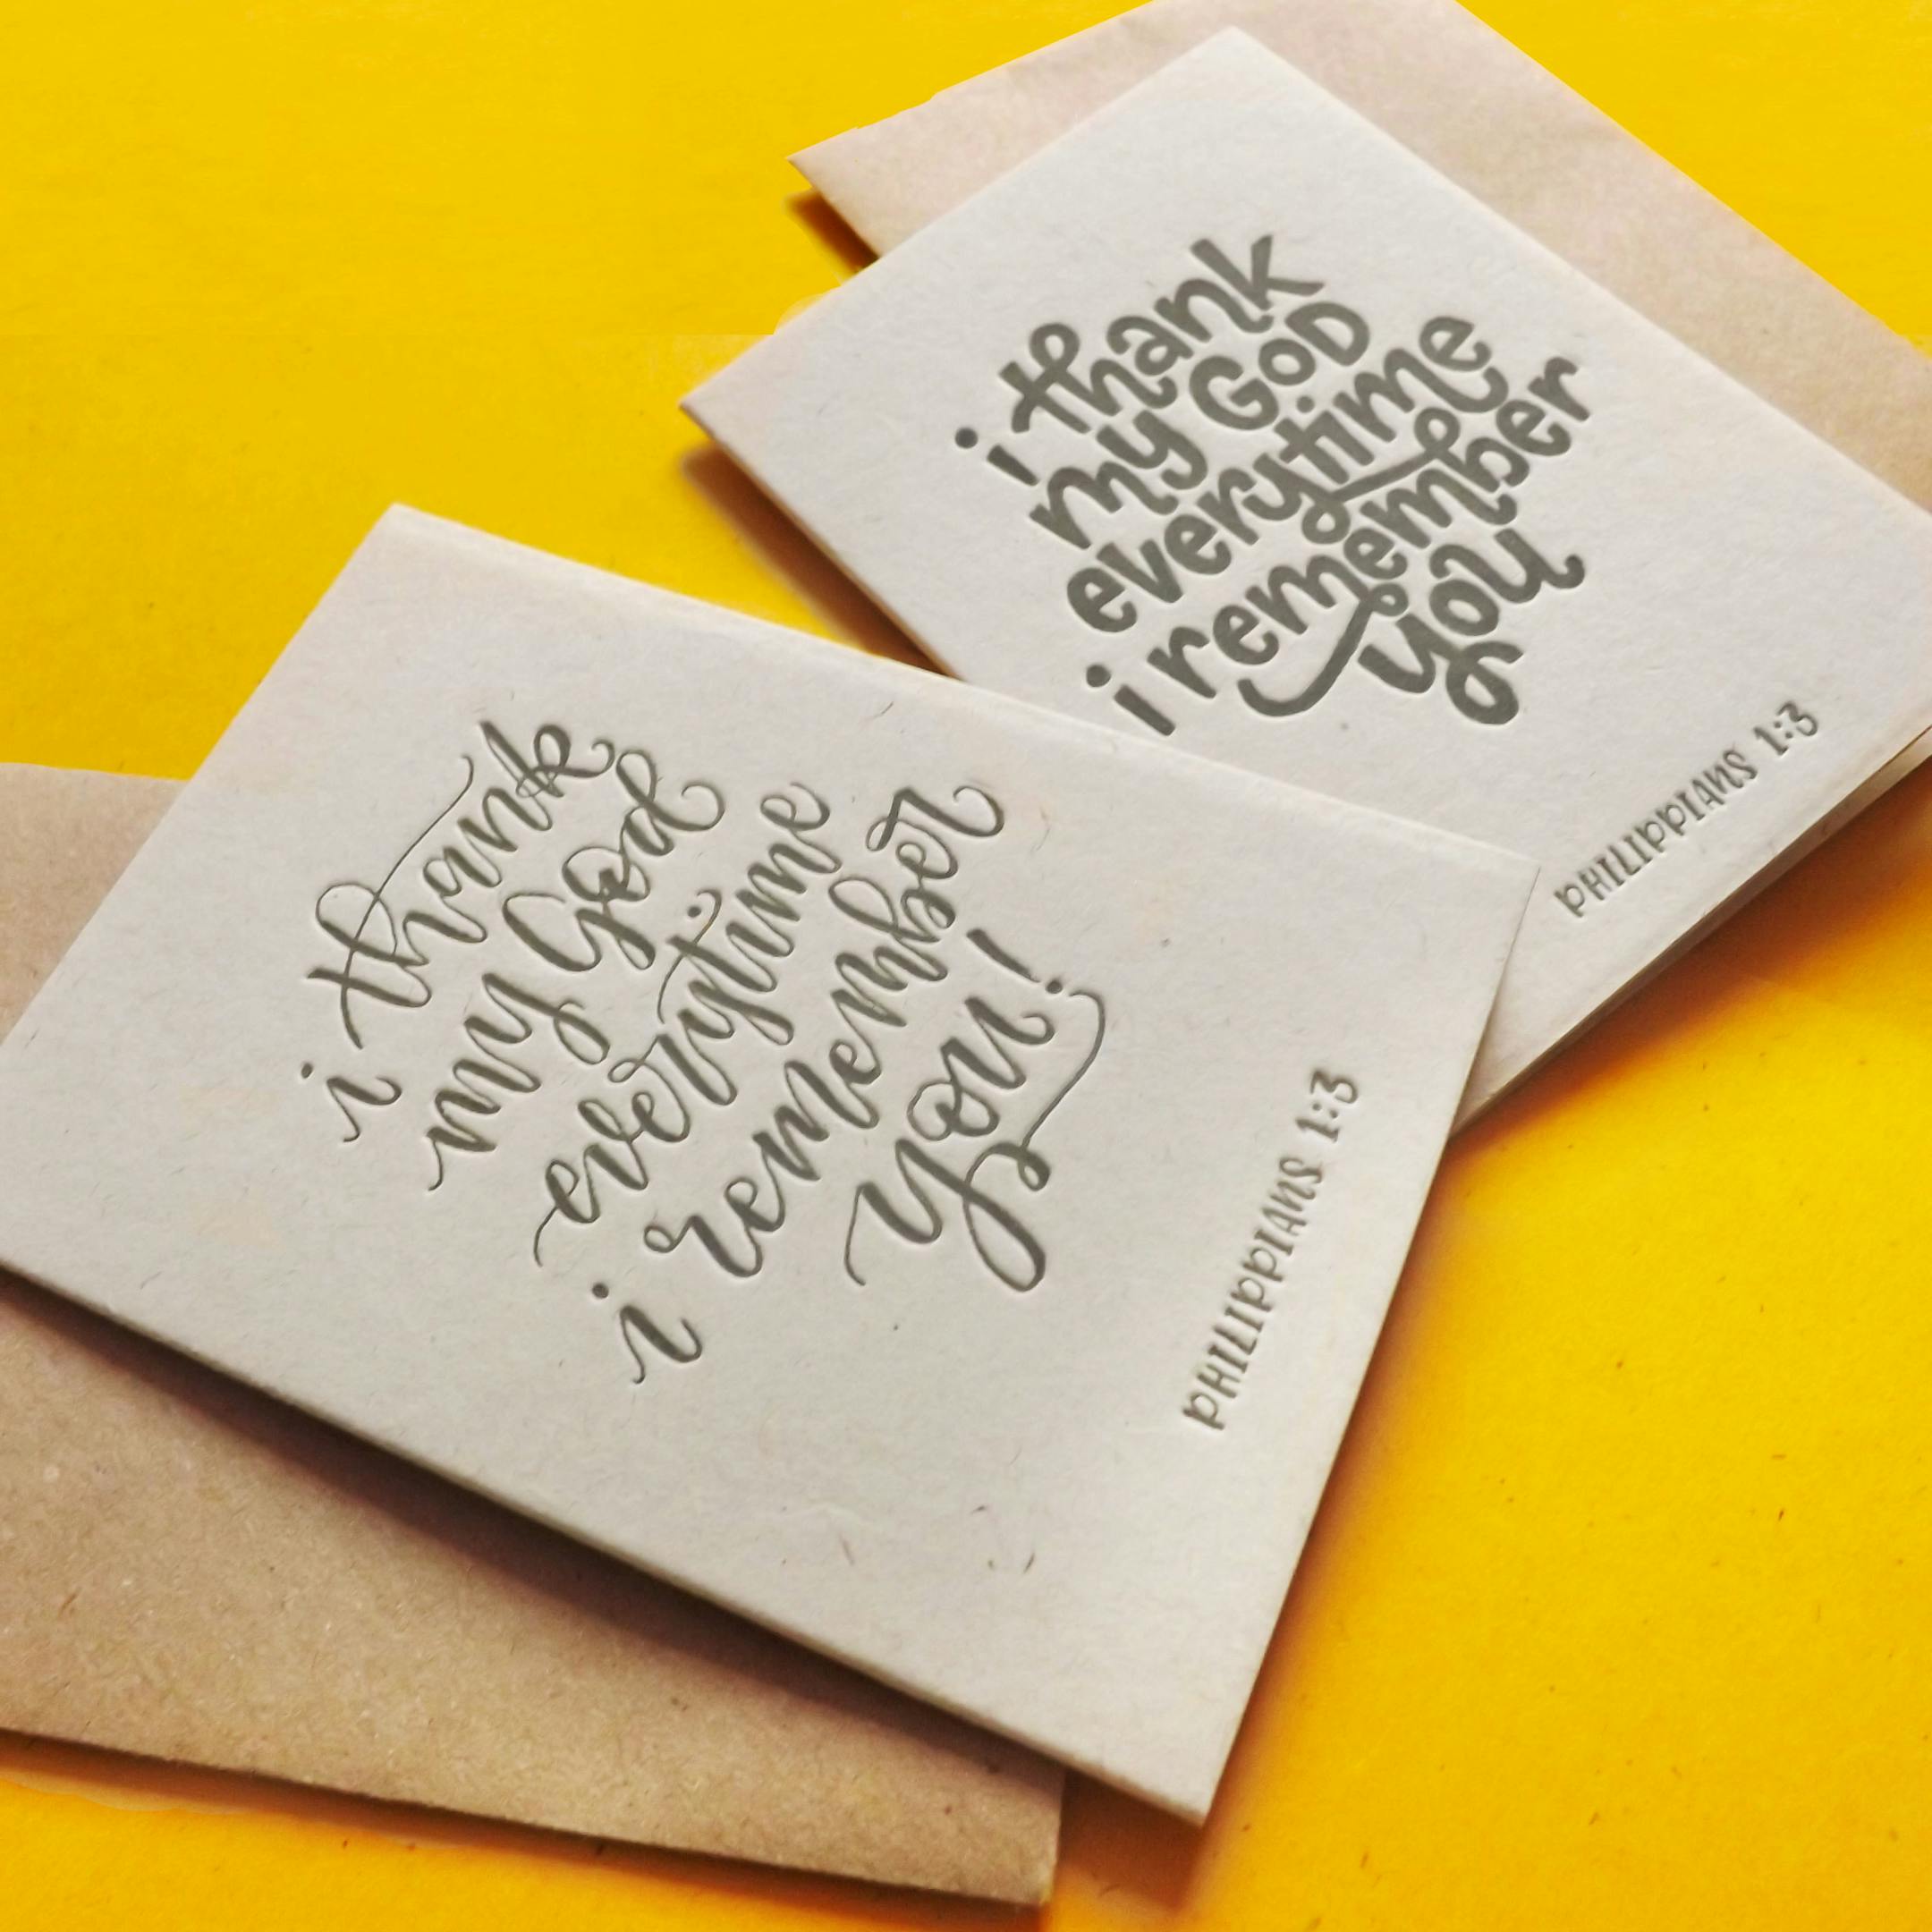 i thank
my GoD
everytime
i remember
you
PHILIPPIANS 1:3
i thank
my God
everytime
i remember
you!
PHILIPPIANS 1:3